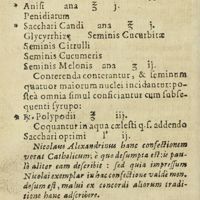 * Anisi ana ʒ j.
Penidiarum
* Sacchari Candi ana ʒ j.
Glycyrrhizę Seminis Cucurbitæ
Seminis Citrulli
Seminis Cucumeris
Seminis Melonis ana ʒ ij.
Conterenda conterantur, & seminum
quatuor maiorum nuclei incidantur: po-
steà omnia simul conficiantur cum subse-
quenti syrupo:
* ℞. Polypodij ℥ iij.
Coquantur in aqua cælesti q. s. addendo
Sacchari optimi l' ij
Nicolaus Alexandrinus hanc confectionem
vocat Catholicum; è quo desumpta est: ù pau-
lò aliter eam describit: sed quia impressum
Nicolai exemplar in hac confectione valdè men-
dosum est, malui ex concordi aliorum traditi-
tione hanc adscribere.